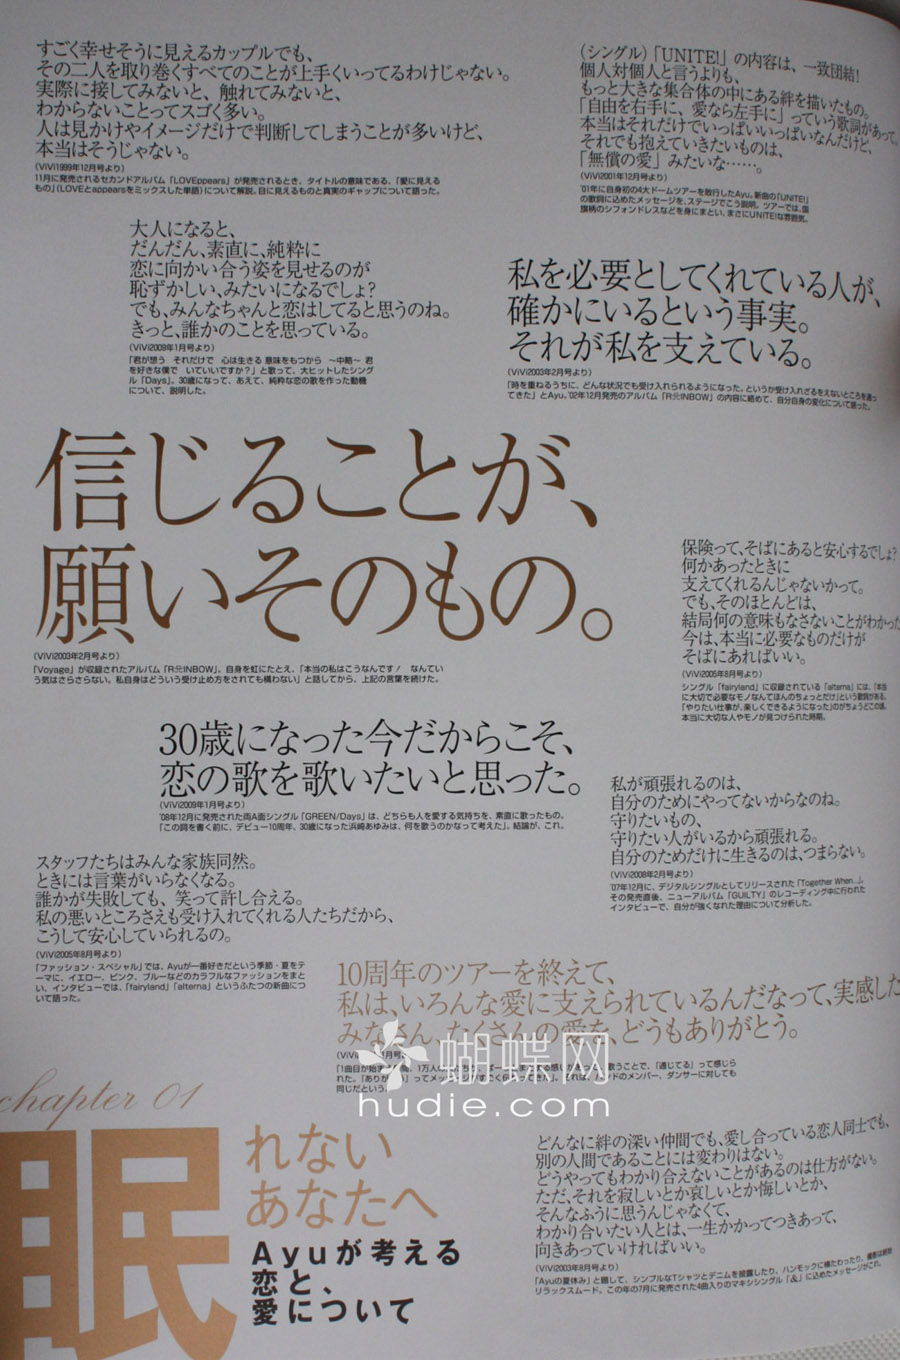 すごく幸せそうに見えるカップルでも、
その二人を取り巻くすべてのことが上手くいってるわけじゃない。
実際に接してみないと、触れてみないと、
わからないことってスゴく多い。
人は見かけやイメージだけで判断してしまうことが多いけど、
本当はそうじゃない。
(ViVi1999年12月号より)
11月に発売されるセカンドアルバム「LOVEppears」が発売されるとき、タイトルの意味である、「愛に見える
もの」(LOVEとappearsをミックスした単語)について解説。目に見えるものと真実のギャップについて語った。
(シングル)「UNITE!」の内容は、一致団結!
個人対個人と言うよりも、
もっと大きな集合体の中にある絆を描いたもの。
「自由を右手に、愛なら左手に」っていう歌詞があって、
本当はそれだけでいっぱいいっぱいなんだけど、
それでも抱えていきたいものは、
「無償の愛」みたいな……。
(ViVi2001年12月号より)
'01年に自身初の4大ドームツアーを敢行したAyu。新曲の「UNITE!」
の歌詞に込めたメッセージを、ステージでこう説明。ツアーでは、国
旗柄のシフォンドレスなどを身にまとい、まさにUNITE!な雰囲気。
大人になると、
だんだん、素直に、純粋に
恋に向かい合う姿を見せるのが
恥ずかしい、みたいになるでしょ?
でも、みんなちゃんと恋はしてると思うのね。
きっと、誰かのことを思っている。
(ViVi2009年1月号より)
「君が想う それだけで 心は生きる 意味をもつから 〜中略〜 君
を好きな僕で いていいですか?」と歌って、大ヒットしたシング
ル「Days」。30歳になって、あえて、純粋な恋の歌を作った動機
について、説明した。
私を必要としてくれている人が、
確かにいるという事実。
それが私を支えている。
(ViVi2003年2月号より)
「時を重ねるうちに、どんな状況でも受け入れられるようになった。というか受け入れざるをえないところを通っ
てきた」とAyu。'02年12月発売のアルバム「R☆INBOW」の内容に絡めて、自分自身の変化について語った。
信じることが、
願いそのもの。
(ViVi2003年2月号より)
「Voyage」が収録されたアルバム「R☆INBOW」。自身を虹にたとえ、「本当の私はこうなんです! なんてい
う気はさらさらない。私自身はどういう受け止め方をされても構わない」と話してから、上記の言葉を続けた。
保険って、そばにあると安心するでしょ?
何かあったときに
支えてくれるんじゃないかって。
でも、そのほとんどは、
結局何の意味もなさないことがわかった
今は、本当に必要なものだけが
そばにあればいい。
(ViVi2005年8月号より)
シングル「fairyland」に収録されている「alterna」には、「本当
に大切で必要なモノなんてほんのちょっとだけ」という歌詞がある。
「やりたい仕事が、楽しくできるようになった」のがちょうどこの頃。
本当に大切な人やモノが見つけられた時期。
30歳になった今だからこそ、
恋の歌を歌いたいと思った。
(ViVi2009年1月号より)
'08年12月に発売された両A面シングル「GREEN/Days」は、どちらも人を愛する気持ちを、素直に歌ったもの。
「この詞を書く前に、デビュー10周年、30歳になった浜崎あゆみは、何を歌うのかなって考えた」。結論が、これ。
私が頑張れるのは、
自分のためにやってないからなのね。
守りたいもの、
守りたい人がいるから頑張れる。
自分のためだけに生きるのは、つまらない。
(ViVi2008年2月号より)
'07年12月に、デジタルシングルとしてリリースされた「Together When...」。
その発売直後、ニューアルバム「GUILTY」のレコーディング中に行われた
インタビューで、自分が強くなれた理由について分析した。
スタッフたちはみんな家族同然。
ときには言葉がいらなくなる。
誰かが失敗しても、笑って許し合える。
私の悪いところさえも受け入れてくれる人たちだから、
こうして安心していられるの。
(ViVi2005年8月号より)
「ファッション・スペシャル」では、Ayuが一番好きだという季節・夏をテ
ーマに、イエロー、ピンク、ブルーなどのカラフルなファッションをまと
い、インタビューでは、「fairyland」「alterna」というふたつの新曲につ
いて語った。
10周年のツアーを終えて、
私は、いろんな愛に支えられているんだなって、実感した
みなさん、たくさんの愛を、どうもありがとう。
(ViVi 月号
「1曲目が始 1万人 歌うことで、「通じてる」って感じら
れた。「ありが ってメッセージが ドのメンバー、ダンサーに対しても
同じだという。
蝴蝶网
hudie.com
chapter 01
眠
れない
あなたへ
Ayuが考える
恋と、
愛について
どんなに絆の深い仲間でも、愛し合っている恋人同士でも、
別の人間であることには変わりはない。
どうやってもわかり合えないことがあるのは仕方がない。
ただ、それを寂しいとか哀しいとか悔しいとか、
そんなふうに思うんじゃなくて、
わかり合いたい人とは、一生かかってつきあって、
向きあっていければいい。
(ViVi2003年8月号より)
「Ayuの夏休み」と題して、シンプルなTシャツとデニムを披露したり、ハンモックに横たわったり、撮影は終始
リラックスムード。この年の7月に発売された4曲入りのマキシシングル「&」に込めたメッセージがこれ。